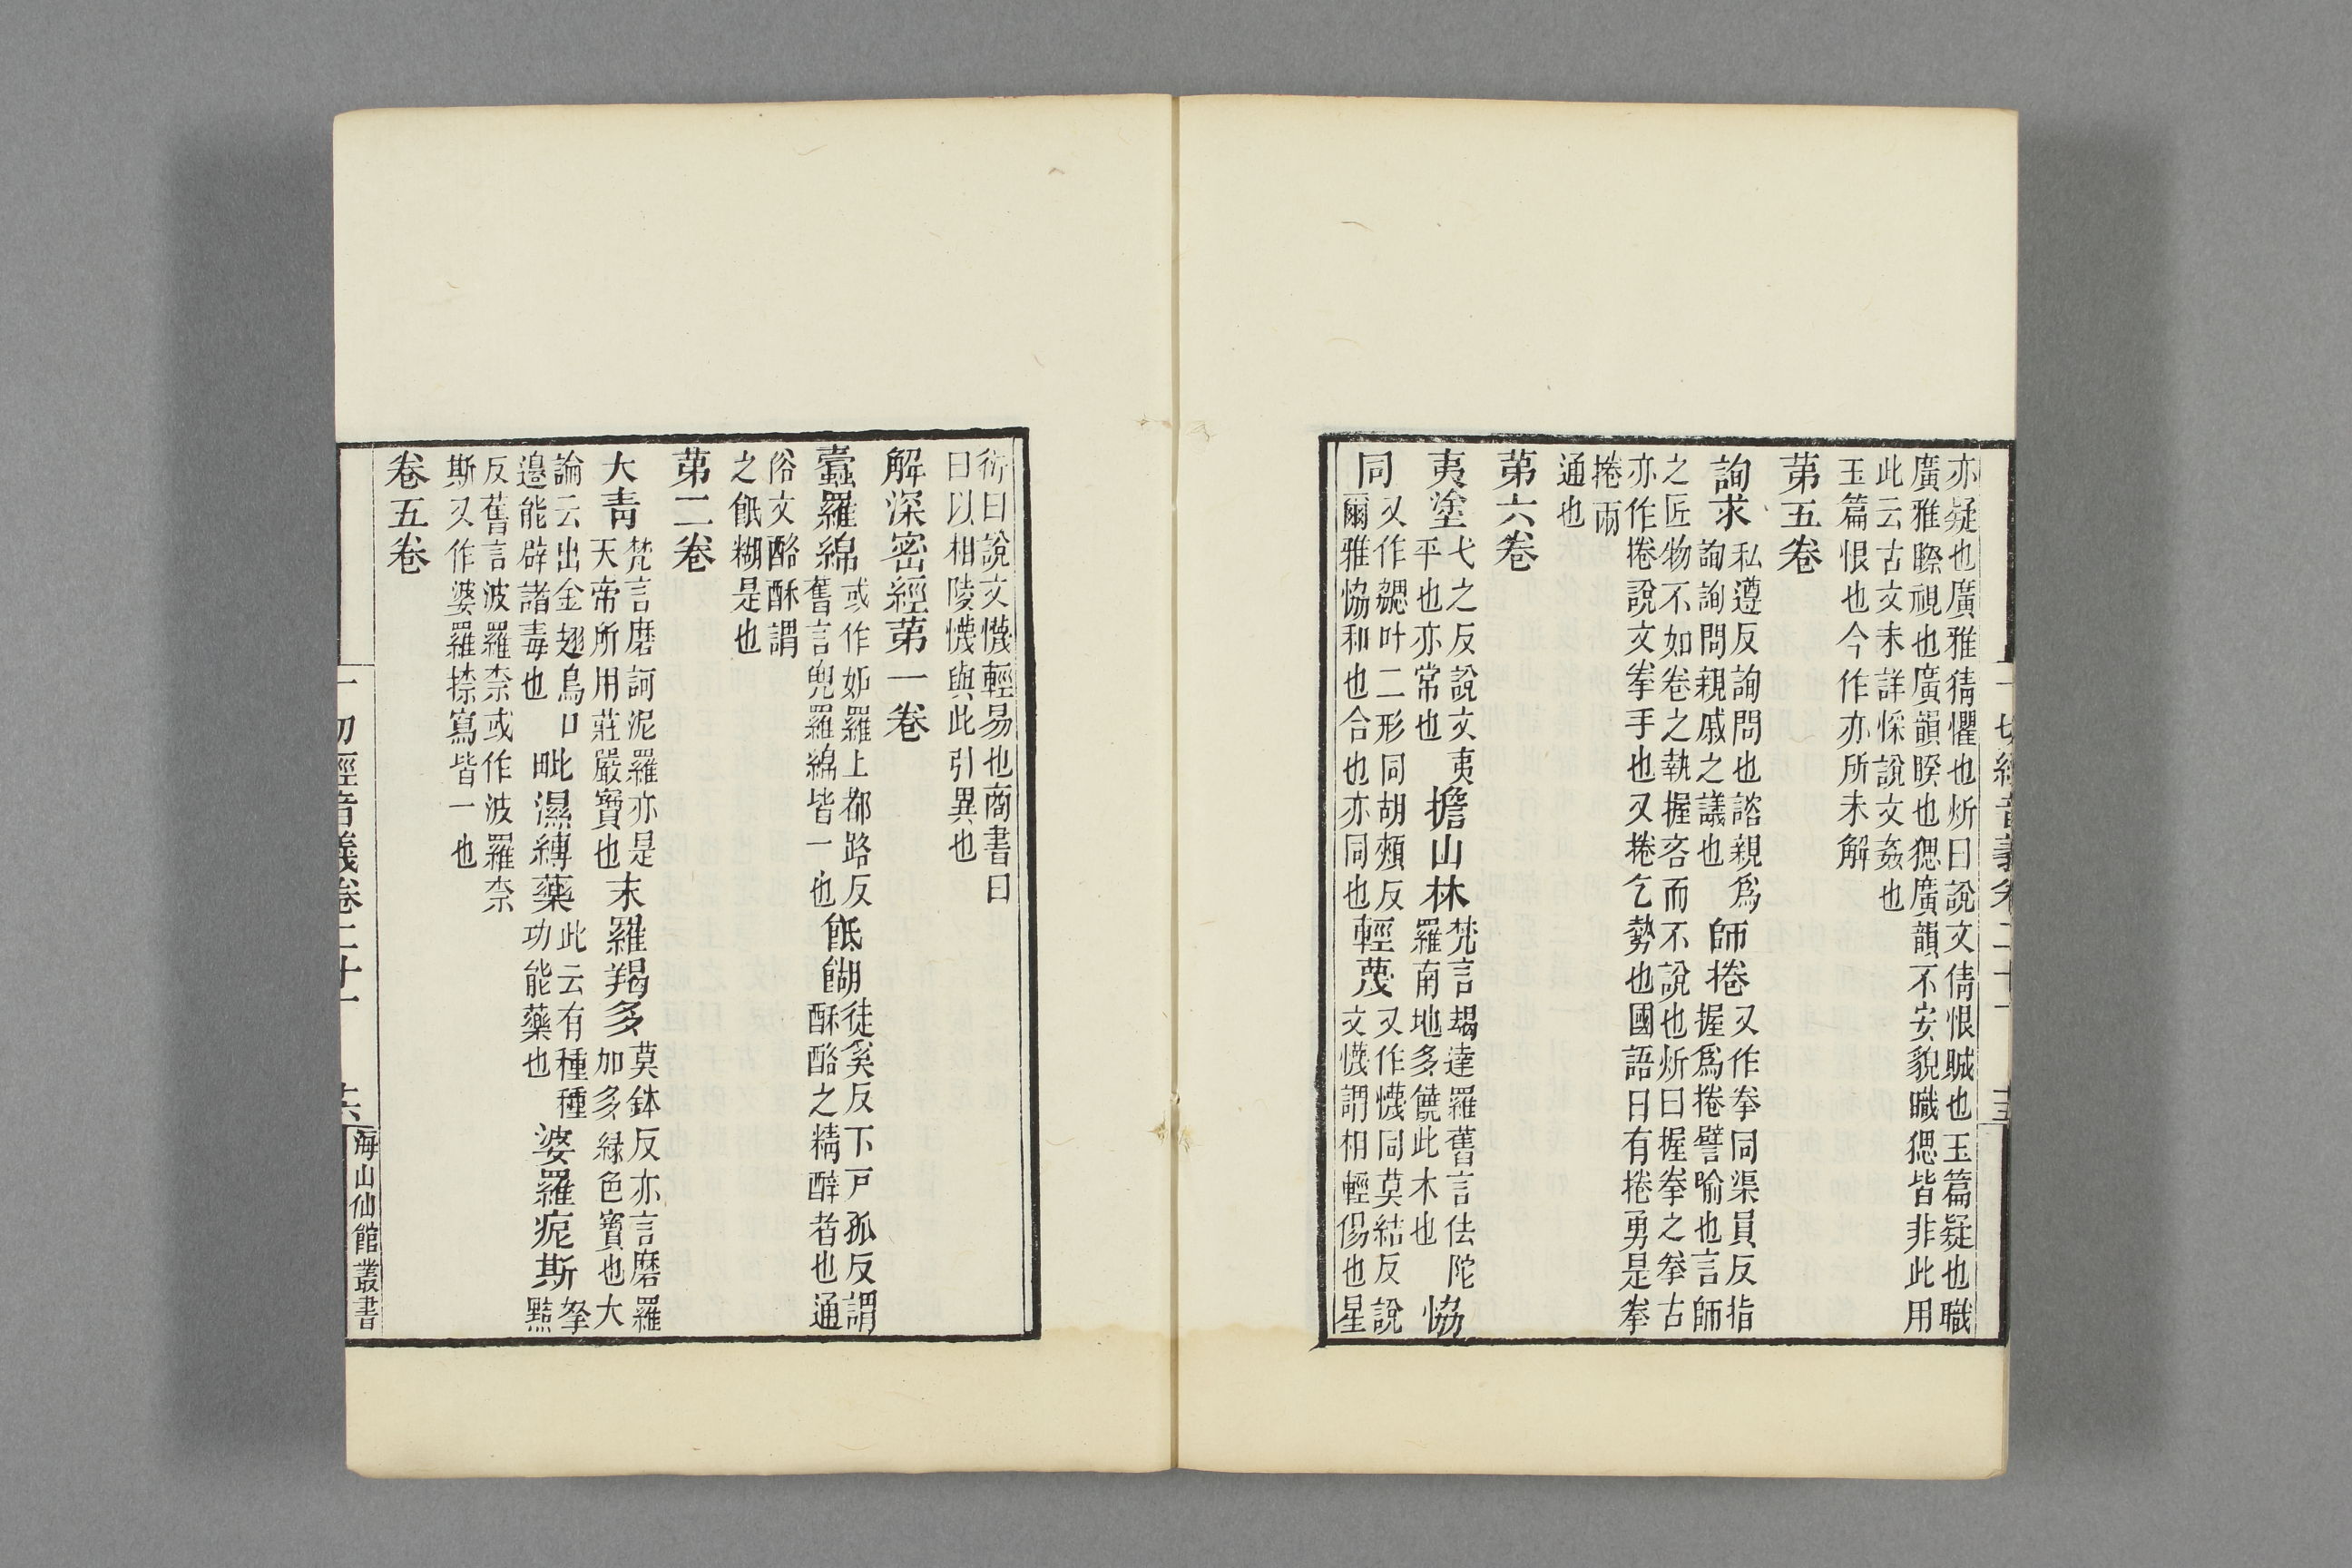 亦疑也廣雅猜懼也炘曰說文倩恨賊也玉篇疑也職
廣雅睩視也廣韻睽也猤廣韻不安貌職猤皆非此用
此云古文未詳悇說文姦也
玉篇恨也今作亦所未解
第五卷
詢求
私遵反詢問也諮親爲
詢詢問親戚之議也
師捲
又作拳同渠員反指
握爲捲譬喻也言師
之匠物不如卷之執握吝而不說也炘曰握拳之拳古
亦作捲說文拳手也又捲乞勢也國語曰有捲勇是拳
捲兩
通也
第六卷
夷塗
弋之反說文夷
平也亦常也
擔山林
梵言朅達羅舊言佉陀
羅南地多饒此木也
恊
同
又作勰叶二形同胡頰反
爾雅恊和也合也亦同也
輕蔑
又作懱同莫結反說
文懱謂相輕傷也星
衍曰說文懱輕易也商書曰
曰以相陵懱與此引異也
解深密經第一卷
蠹羅綿
或作妬羅上都路反
舊言兜羅綿皆一也
䬫餬
徒奚反下戸孤反謂
酥酪之精醇者也通
俗文酪酥謂
之䬫糊是也
第二卷
大青
梵言磨訶泥羅亦是
天帝所用莊嚴寶也
末羅羯多
莫鉢反亦言磨羅
加多綠色寶也大
論云出金翅鳥口
邉能辟諸毒也
毗濕縳藥
此云有種種
功能藥也
婆羅痆斯
拏
黠
反舊言波羅柰或作波羅柰
斯又作婆羅捺寫皆一也
卷五卷
一切經音義卷二十一
十六
海山仙館叢書